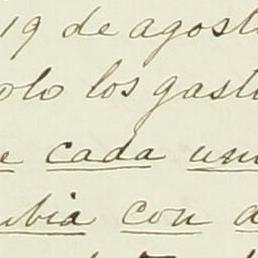 19 de agosto
solo los gast
e cada un
ubia con a